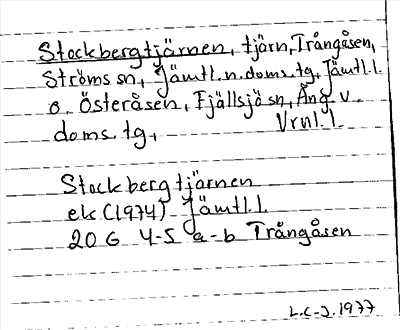 Stockbergtjärnen, tjärn, Trångåsen,
Ströms sn, Jämtl. n. doms. tg, Jämtl. l.
o. Österåsen, Fjällsjö sn, Ång. v.
doms. tg, Vrnl. l.
Stockbergtjärnen
ek (1974) Jämtl. l.
20 G 4-5 a-b Trångåsen
L.C-J. 1977